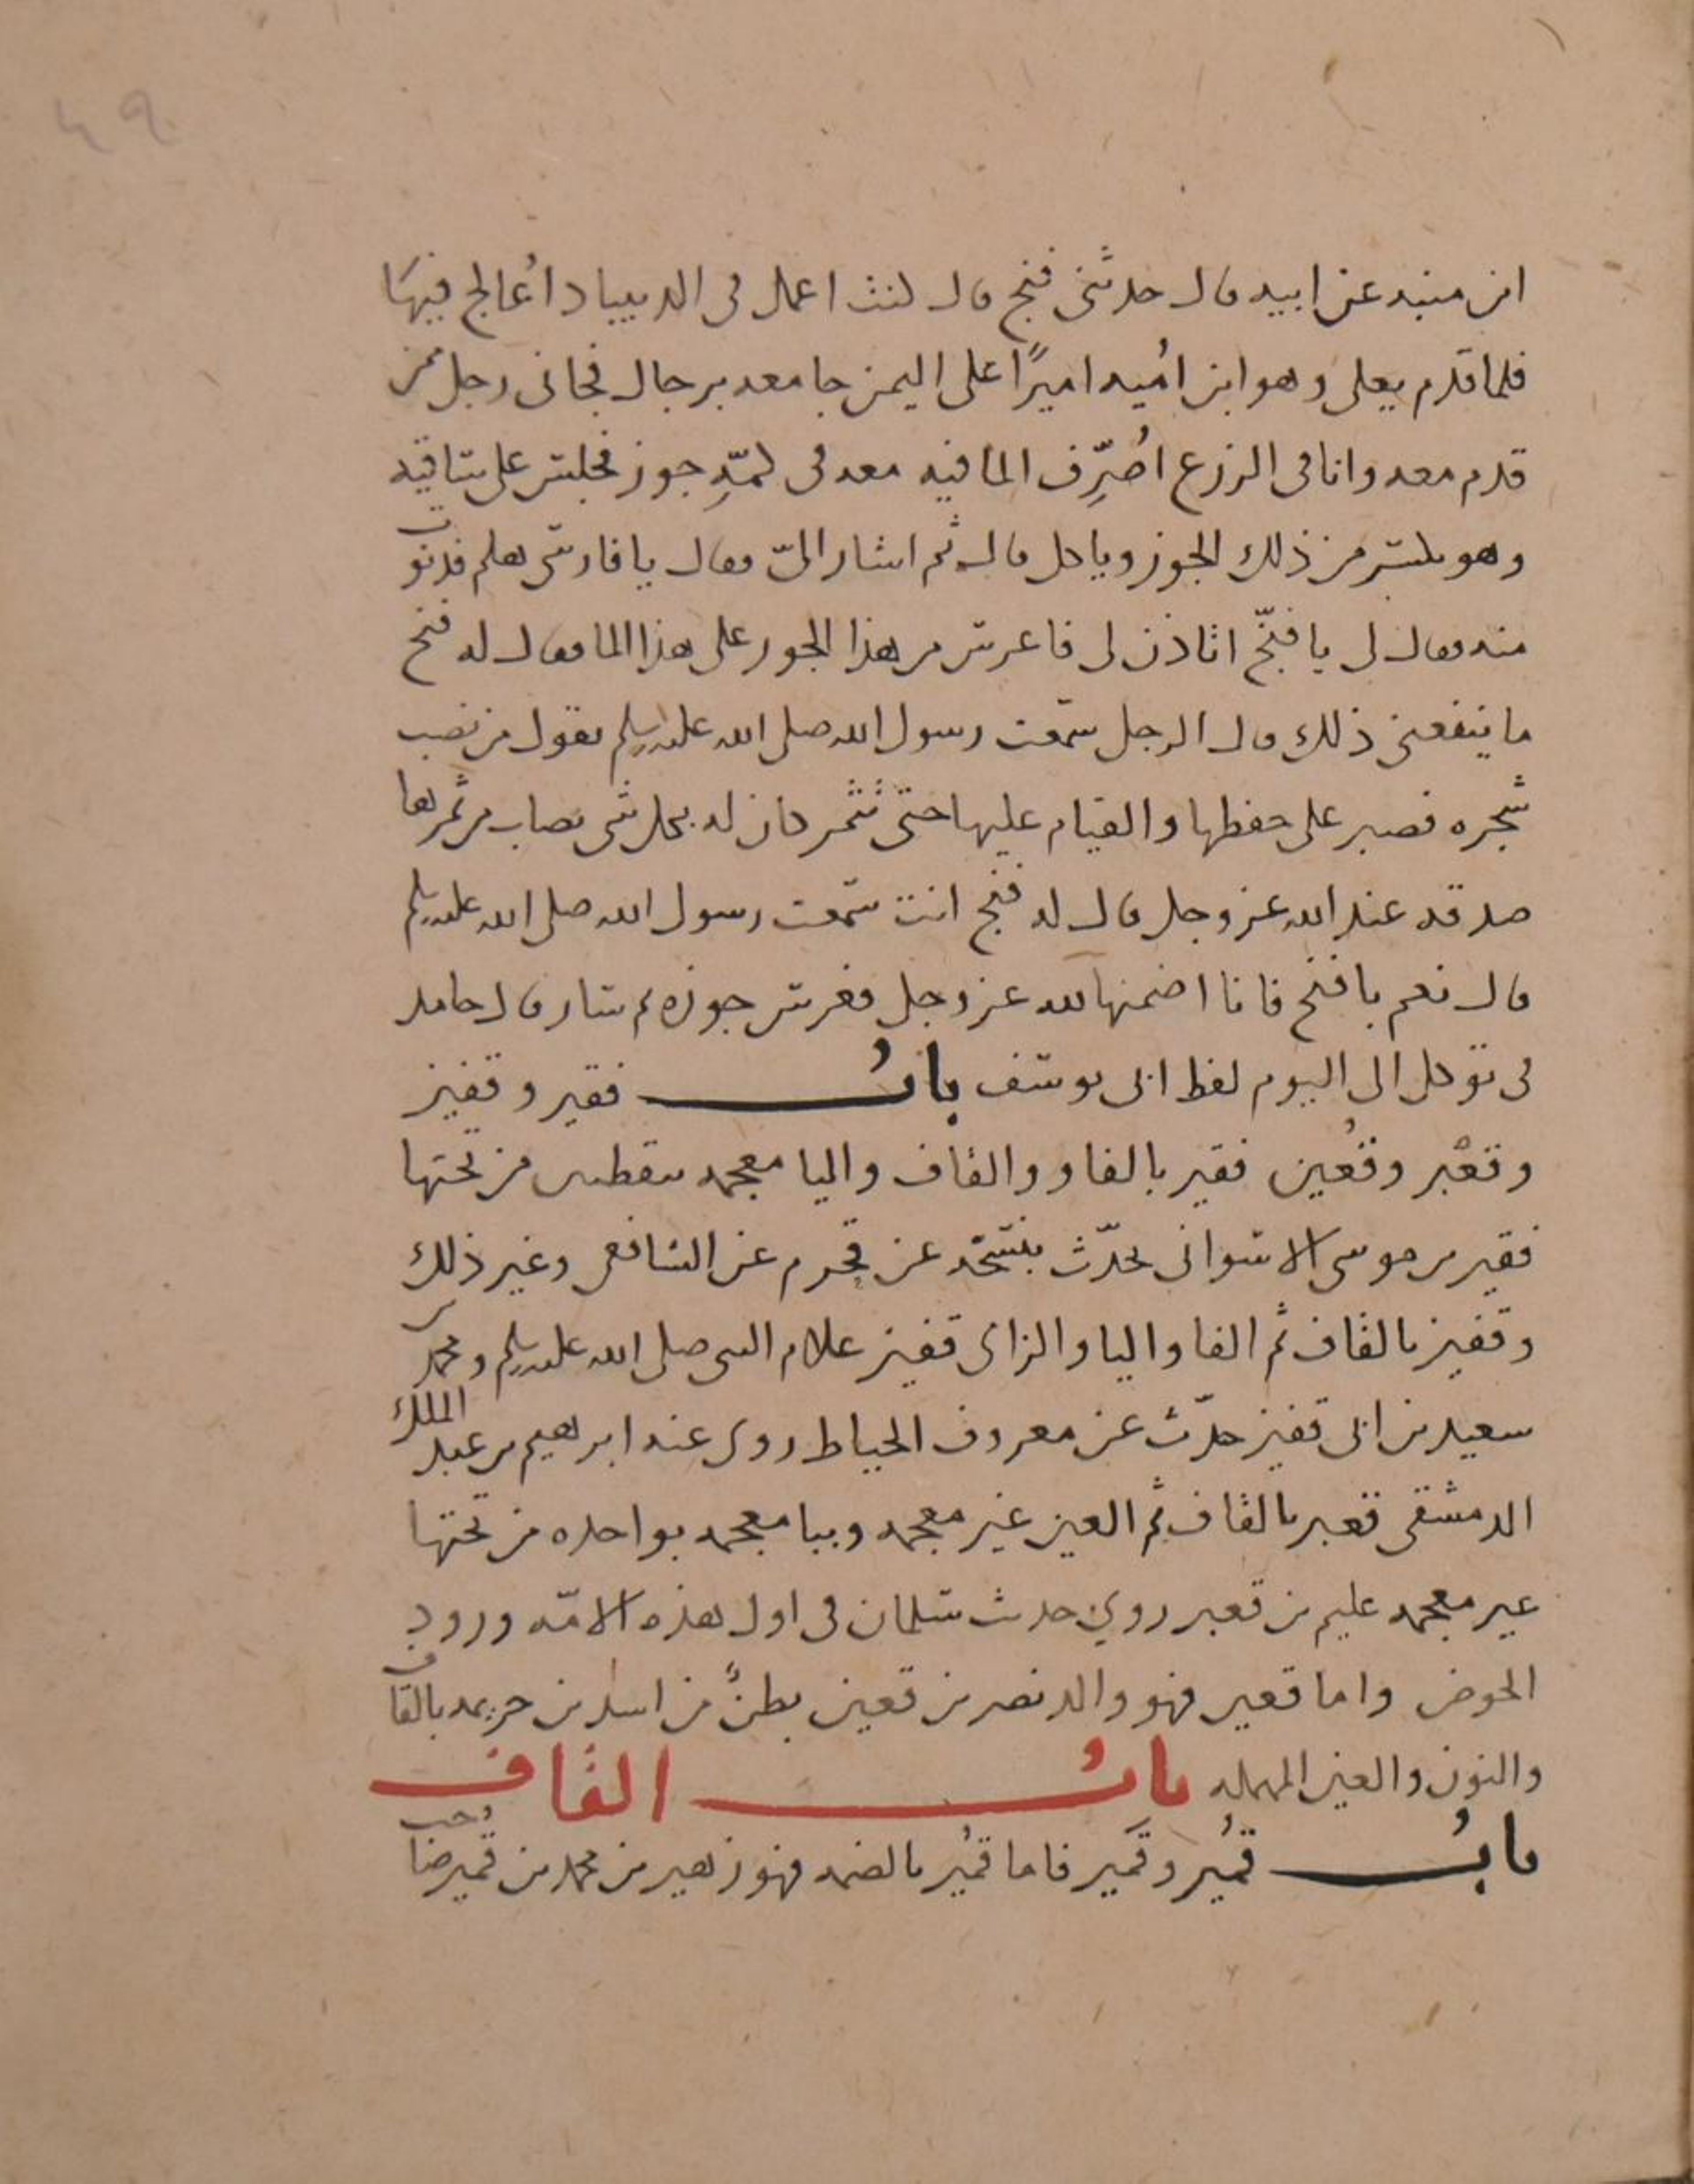 ٤٩
ابن منبه عن ابيه قال حدثنى فنج قال كنت اعمل فى الدينباد اعالج فيها
فلما قدم يعلى وهو ابن اُميه اميرًا على اليمن جا معه برجال فجانى رجل ممن
قدم معه وانا فى الزرع اصَرِّف الما فيه معه فى كمّهِ جوز فجلس على ساقيه
وهو يكسر من ذلك الجوز وياكل قال ثم اشار الىّ فقال يا فارسى هلم فدنوت
منه فقال لى يا فنّج اتاذن لى فاغرس من هذا الجوز على هذا الما فقال له فنج
ما ينفعنى ذلك قال الرجل سمعت رسول الله صلى الله عليه وسلم يقول من نصب
شجره فصبر على حفظها والقيام عليها حتى تُثمر كان له بكل شى يصاب من ثمرها
صدقه عند الله عز وجل قال له فنج انت سمعت رسول الله صلى الله عليه وسلم
قال نعم يا فنج فانا اضمنها لله عز وجل فغرس جوزه ثم سار قال حامد
فى توكل الى اليوم لفظ ابى يوسف بابُ فقير وقفيز
وقعْبر وقُعين فقير بالفا والقاف واليا معجمه بنقطتين من تحتها
فقير بن موسى الاسوانى يحدّث بنسخه عن قحزم عن الشافعى وغير ذلك
وقفيز بالقاف ثم الفا واليا والزاى قفيز غلام النبى صلى الله عليه وسلم ومحمد بن
سعيد بن ابى قفيز حدّث عن معروف الخياط روى عنه ابرهيم بن عبد الملك
الدمشقى قعبر بالقاف ثم العين غير معجمه وببا معجمه بواحده من تحتها
غير معجمه عليم بن قعبر روي حديث سلمان فى اول هذه الامّه ورود
الحوض واما قعين فهو والد نصر بن قعين بطنٌ من اسد بن خزيمه بالقاف
والنون والعين المهمله بابُ القاف
بابُ قمُير وقَمير فاما قمُير بالضمه فهو زهير بن محمد بن قمير صاحب